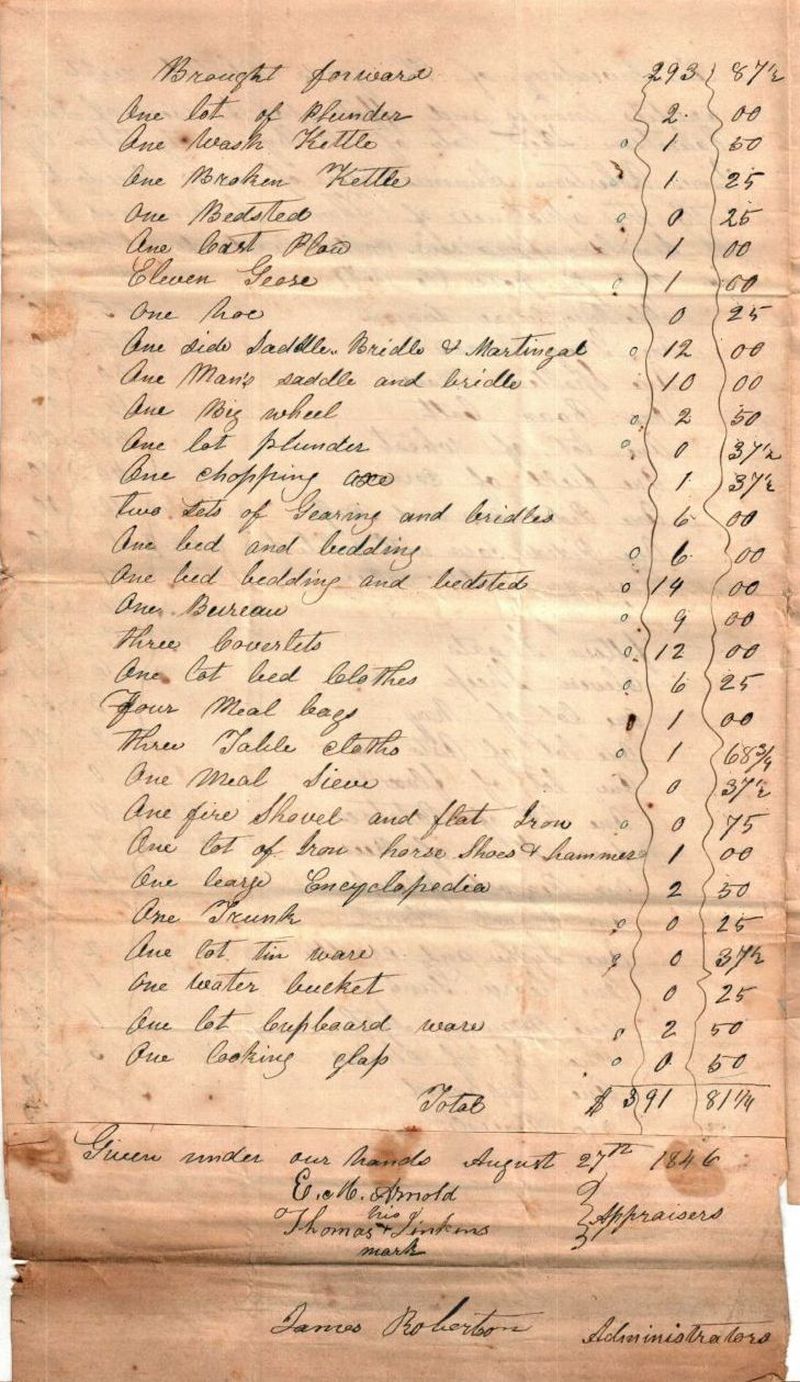 Brought forward 293 87½
One lot of Plunder 2. 00
One Wash Kettle 1 50
One Broken Kettle 1 25
One Bedsted 0 25
One Cast Plow 1 00
Eleven Geese 1 00
One hoe 0 25
One side Saddle. Bridle & Martingal 12 00
One Man's saddle and bridle 10 00
One Big wheel 2 50
One lot plunder 0 37½
One chopping axe 1 37½
two sets of Gearing and bridles 6 00
One bed and bedding 6 00
One bed bedding and bedsted 14 00
One Bureau 9 00
three Coverlets 12 00
One lot bed Clothes 6 25
Four Meal bags 1 00
three Table cloths 1 68¾
One Meal Sieve 0 37½
One fire Shovel and flat Iron 0 75
One lot of Iron horse Shoes & hammer 1 00
One learge Encyclopedia 2 50
One Trunk 0 25
One lot tin ware 0 37½
One water bucket 0 25
One lot Cupboard ware 2 50
One looking glass 0 50
Total $ 391 81¼
Given under our hands August 27th 1846
E. M. Arnold
his
Thomas + Jinkins } Appraisers
mark
James Roberton Administrators